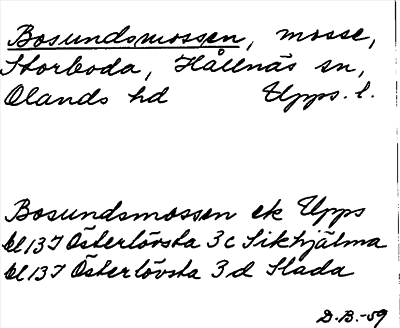 Bosundsmossen, mosse,
Storboda, Hållnäs sn,
Olands hd Upps. l.
Bosundsmossen ek Upps
bl 13 I Österlövsta 3 c Sikhjälma
bl 13 I Österlövsta 3 d Slada
D.B.-59